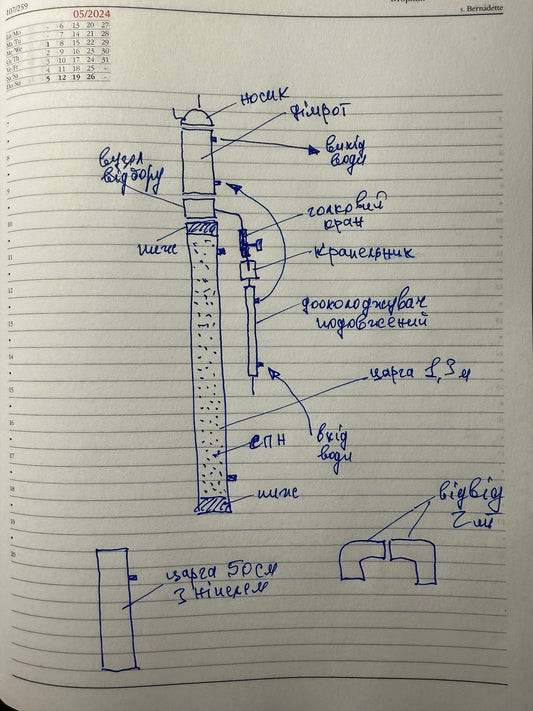 107/259
s. Bernadette
05/2024
Mo - 6 13 20 27
Tu - 7 14 21 28
We 1 8 15 22 29
Th 2 9 16 23 30
Fr 3 10 17 24 31
Sa 4 11 18 25 -
Su 5 12 19 26 -
носик
дімрот
вихід
води
вузол
відбору
голковий
кран
пижс
крапельник
8
9
10
11
12
13
14
15
16
17
18
19
20
доохолоджувач
подовжений
царга 1,3 м
СПН
вхід
води
пижс
відвід
2 шт
царга 50 см
з ніпелем